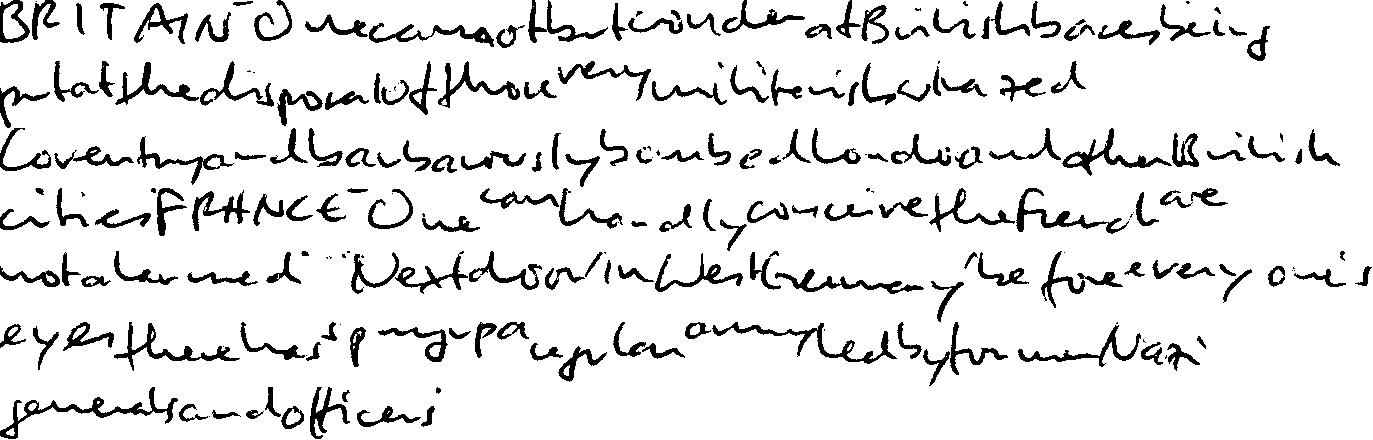 BRITAIN One cannot but wonder at British bases being
put at the disposal of those very militarists who razed
Coventry and barbarously bombed London and other British
cities FRANCE One can hardly conceive the French are
not alarmed Next door in West Germany before everyone's
eyes there has sprung up a regular army led by former Nazi
generals and officers